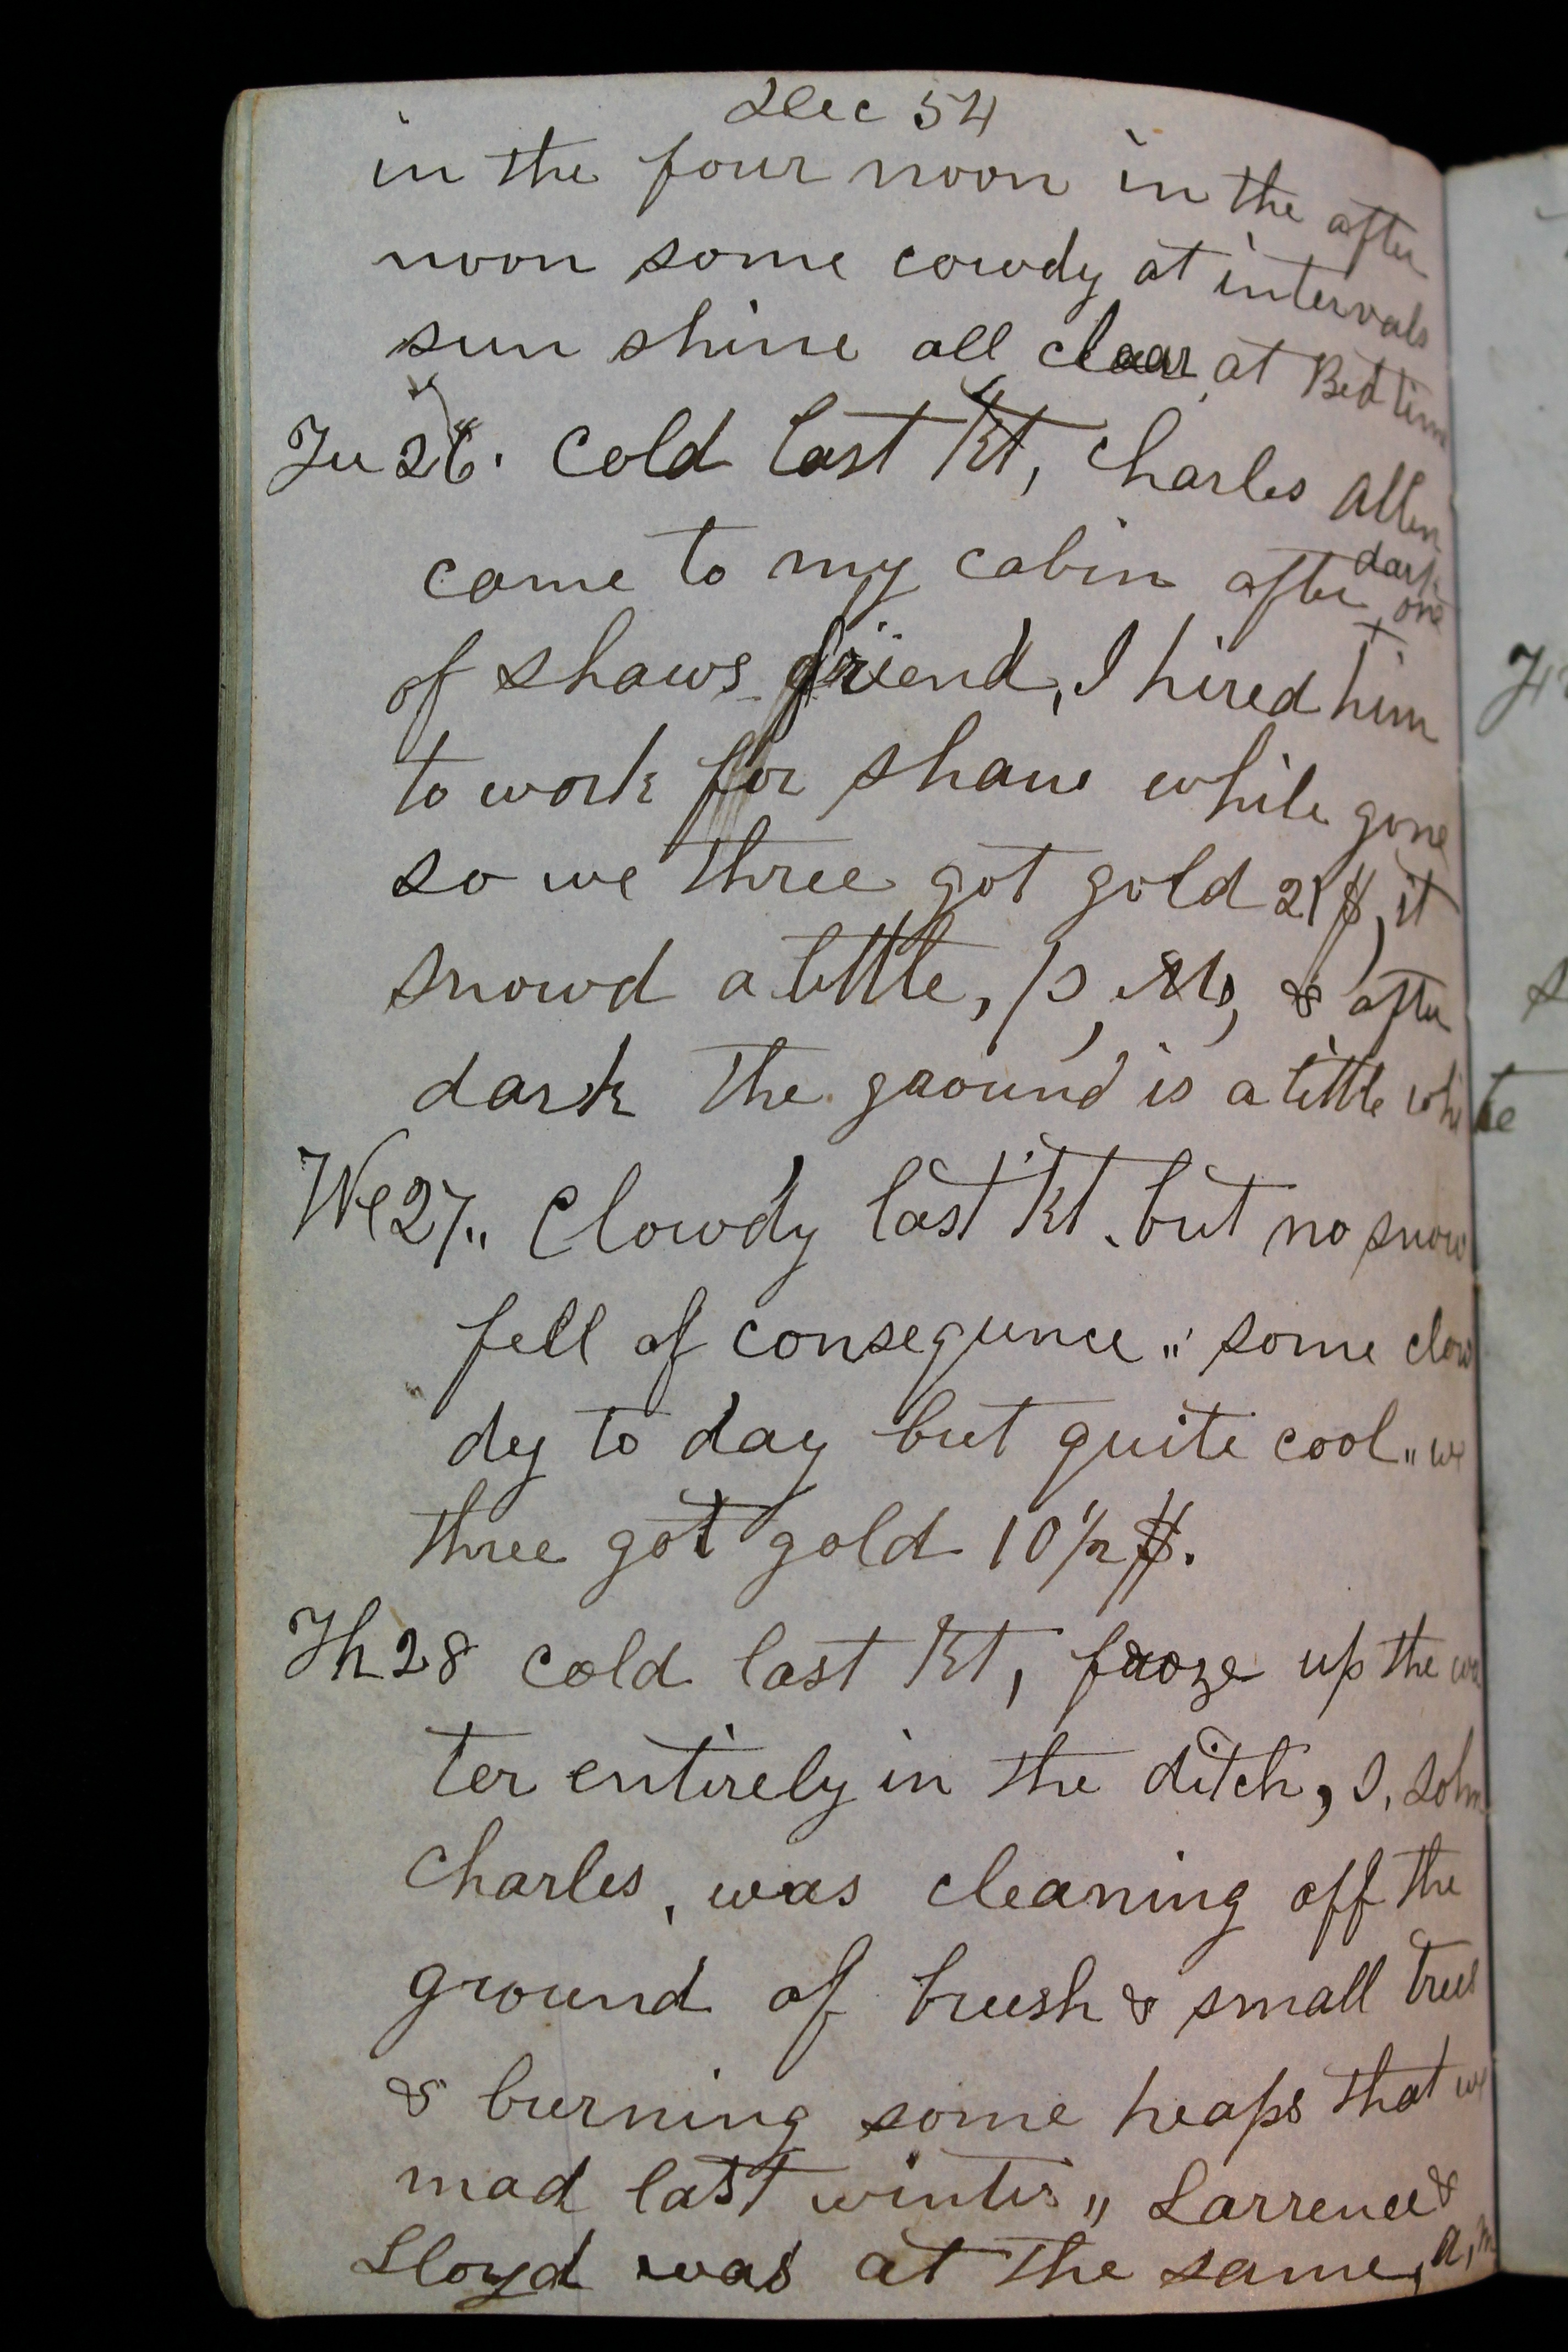 Dec 54
in the four noon in the after
noon some cowdy at intervals
sun shine all clear at Bed time
Tu 26. Cold last Nt, Charles Allen
come to my cabin after dark one
of shaws friend, I hired him
to work for shaw while gone
so we three got gold 21$, it
snowd a little, P, M, & after
dark the ground is a little white
We 27,, Clowdy last Nt. but no snow
fell of consequnce,, some clow
dy to day but quite cool,, we
three got gold 10 1/2 $.
Th 28 cold last Nt, froze up the wa
ter entirely in the ditch, I, John
Charles, was cleaning off the
ground of brush & small trees
& burning some heaps that we
mad last winter,, Larrence &
Lloyd was at the same, A, M